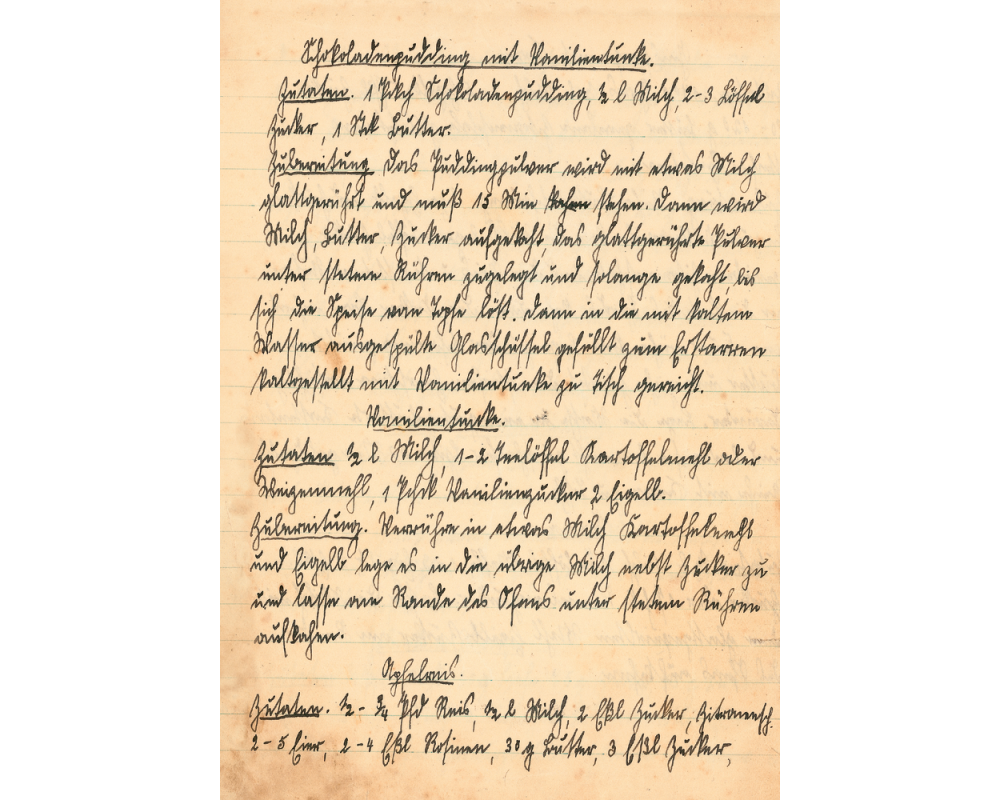 Schokoladenpudding mit Vanilientunke.
Zutaten. 1 Pckch Schokoladenpudding, ½ l Milch, 2-3 Löffel
Zucker, 1 Stck Butter.
Zubereitung Das Puddingpulver wird mit etwas Milch
glattgerührt und muß 15 Min stehen. Dann wird
Milch, Butter, Zucker aufgekocht, das glattgerührte Pulver
unter stetem Rühren zugelegt und solange gekocht, bis
sich die Speise vom Topfe löst. Dann in die mit kaltem
Wasser ausgespülte Glasschüssel gefüllt zum Erstarren
kaltgestellt mit Vanilientunke zu Tisch gereicht.
Vanilientunke.
Zutaten ½ l Milch, 1-2 Teelöffel Kartoffelmehl oder
Weizenmehl, 1 Pchck Vanilienzucker 2 Eigelb.
Zubereitung. Verrühre in etwas Milch Kartoffelmehl
und Eigelb lege es in die übrige Milch nebst Zucker zu
und lasse am Rande des Ofens unter stetem Rühren
aufkochen.
Apfelreis.
Zutaten. ½-¾ Pfd Reis, ½ l Milch, 2 Eßl Zucker Zitronensch.
2-5 Eier, 2-4 Eßl Rosinen, 30 g Butter, 3 Eßl Zucker,